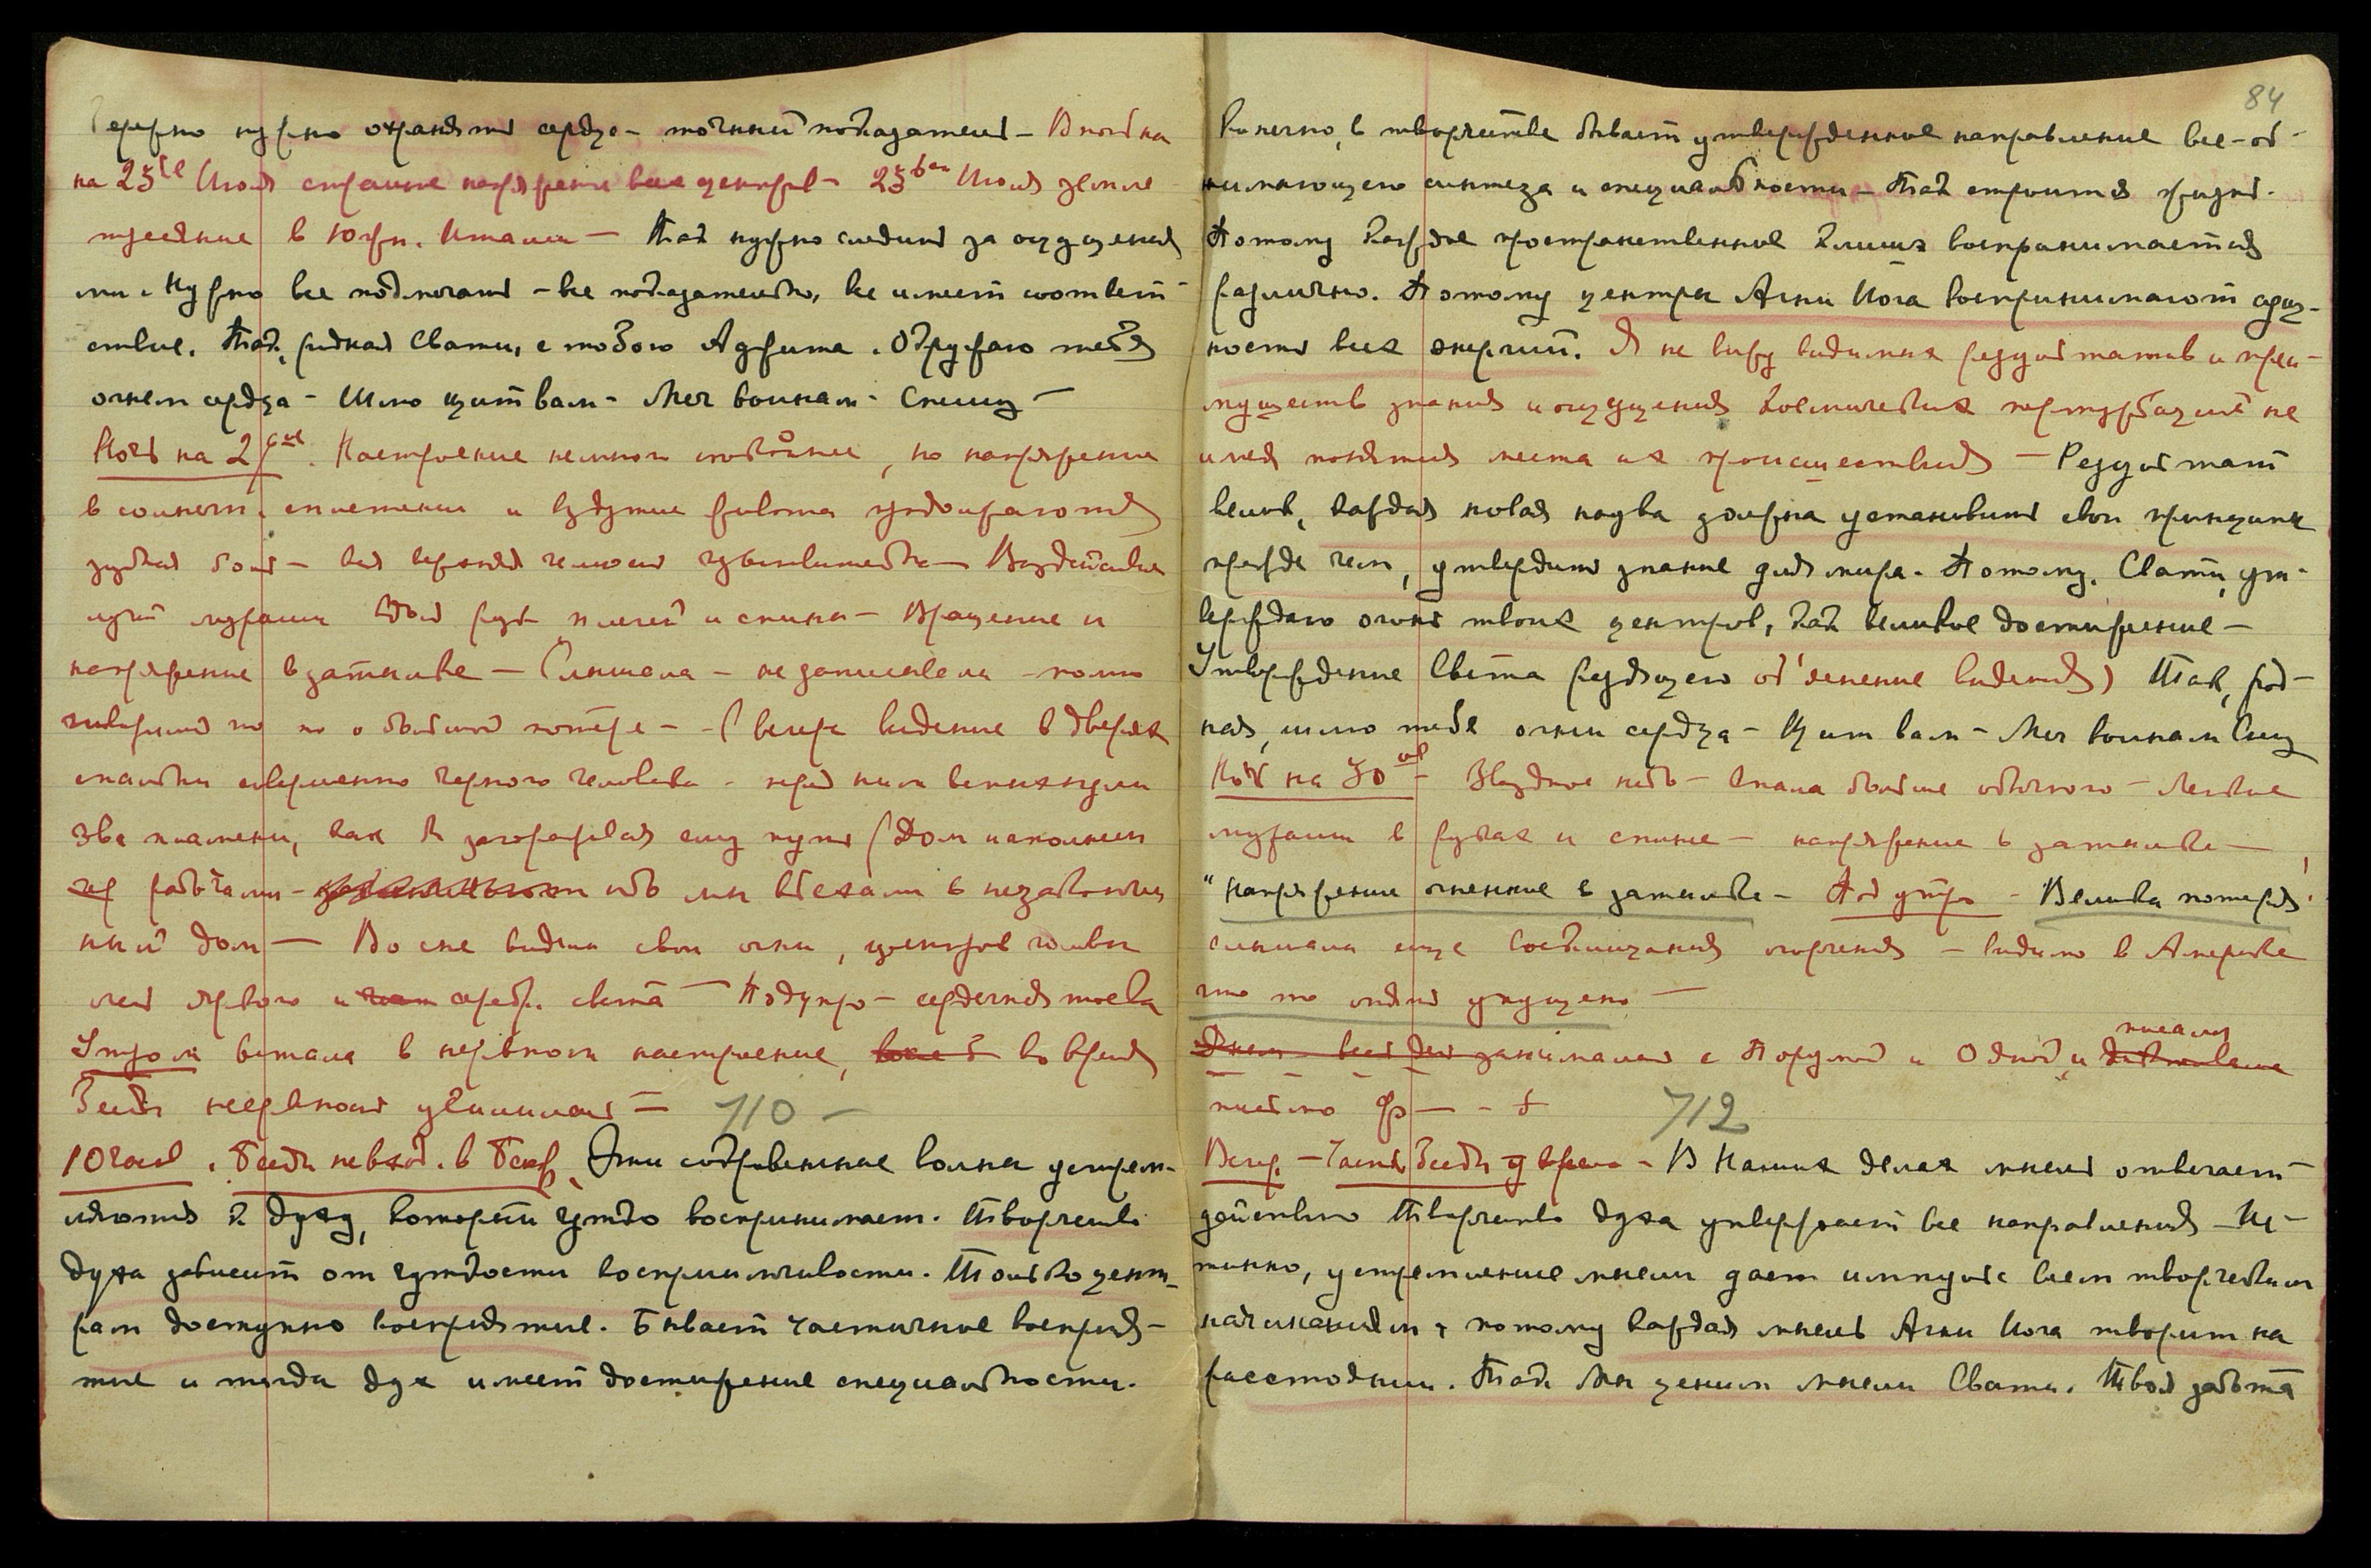 бережно нужно охранять сердце – точный показатель – В ночь на
на 23ье Июля страшное напряжение всех центров – 23ьего Июля земле
трясение в Южн. Италии – Так нужно следить за ощущения
ми. Нужно все подмечать – все показательно, все имеет соответ-
ствие. Так, родная Свати, с тобою Аджита. Окружаю тебя
огнем сердца – Шлю щит вам – Меч воинам – Спешу –
Ночь на 29ое. Настроение немного спокойнее, но напряжение
в солнечн. сплетении и вздутие живота продолжаются
зубная боль – вся верхняя челюсть чувствительна – Воздействие
лучей мурашки вдоль рук плечей и спины – Вращение и
напряжение в затылке – Слышала – не записывала – помню
говорили что то о большой потере – (вечером видение в дверях
спальни совершенно черного человека – перед ним вспыхнули
два пламени, как бы загораживая ему путь (Дом наполнен
рабочими – ибо мы въехали в незакончен
ный дом – Во сне видела свои огни, центров головы
лей яркого и серебр. света – Под утро – сердечная тоска
Утром встала в нервном настроение, во время
Беседы нервность усилилась – 710 –
10 часов. Беседы не вход. в Беспр. Эти сокровенные волны устрем-
ляются к духу, который чутко воспринимает. Творчество
духа зависит от чуткости восприимчивости. Только цент-
рам доступно восприятие. Бывает частичное восприя-
тие и тогда дух имеет достижение специальности.
84
Конечно, в творчестве бывает утвержденное направление все-об-
нимающего синтеза и специальности – Так строится жизнь.
Потому каждое пространственное клише воспринимается
различно. Потому центры Агни Йога воспринимают сущ-
ность всех энергий. Я не вижу видимых результатов и преи-
муществ знания и ощущения космических пертурбаций не
имея понятия места их происшествия – Результат
велик, каждая новая наука должна установить свои принципы
прежде чем, утвердить знание для мира. Потому, Свати, ут-
верждаю огонь твоих центров, как великое достижение –
Утверждение Света (будущего объяснение видения) Так, род-
ная, шлю тебе огни сердца – Щит вам – Меч воинам Спешу
Ночь на 30ое – Звездное небо – Спала больше обычного – Легкие
мурашки в руках и спине – напряжение в затылке –
"напряжение огненное в затылке – Под утро – Велика потеря"
слышала еще восклицания огорчения – видимо в Америке
что то опять упущено –
Днем – весь день занималась с Порумой и Одной, и писала
письмо Ф – – –
712
Вечер – Часть Беседы – В Наших делах мысль отвечает
действию Творчество духа утверждает все направления – Ис-
тинно, устремление мысли дает импульс всем творческим
начинаниям, потому каждая мысль Агни Йога творит на
расстоянии. Так Мы ценим мысли Свати. Твоя забота